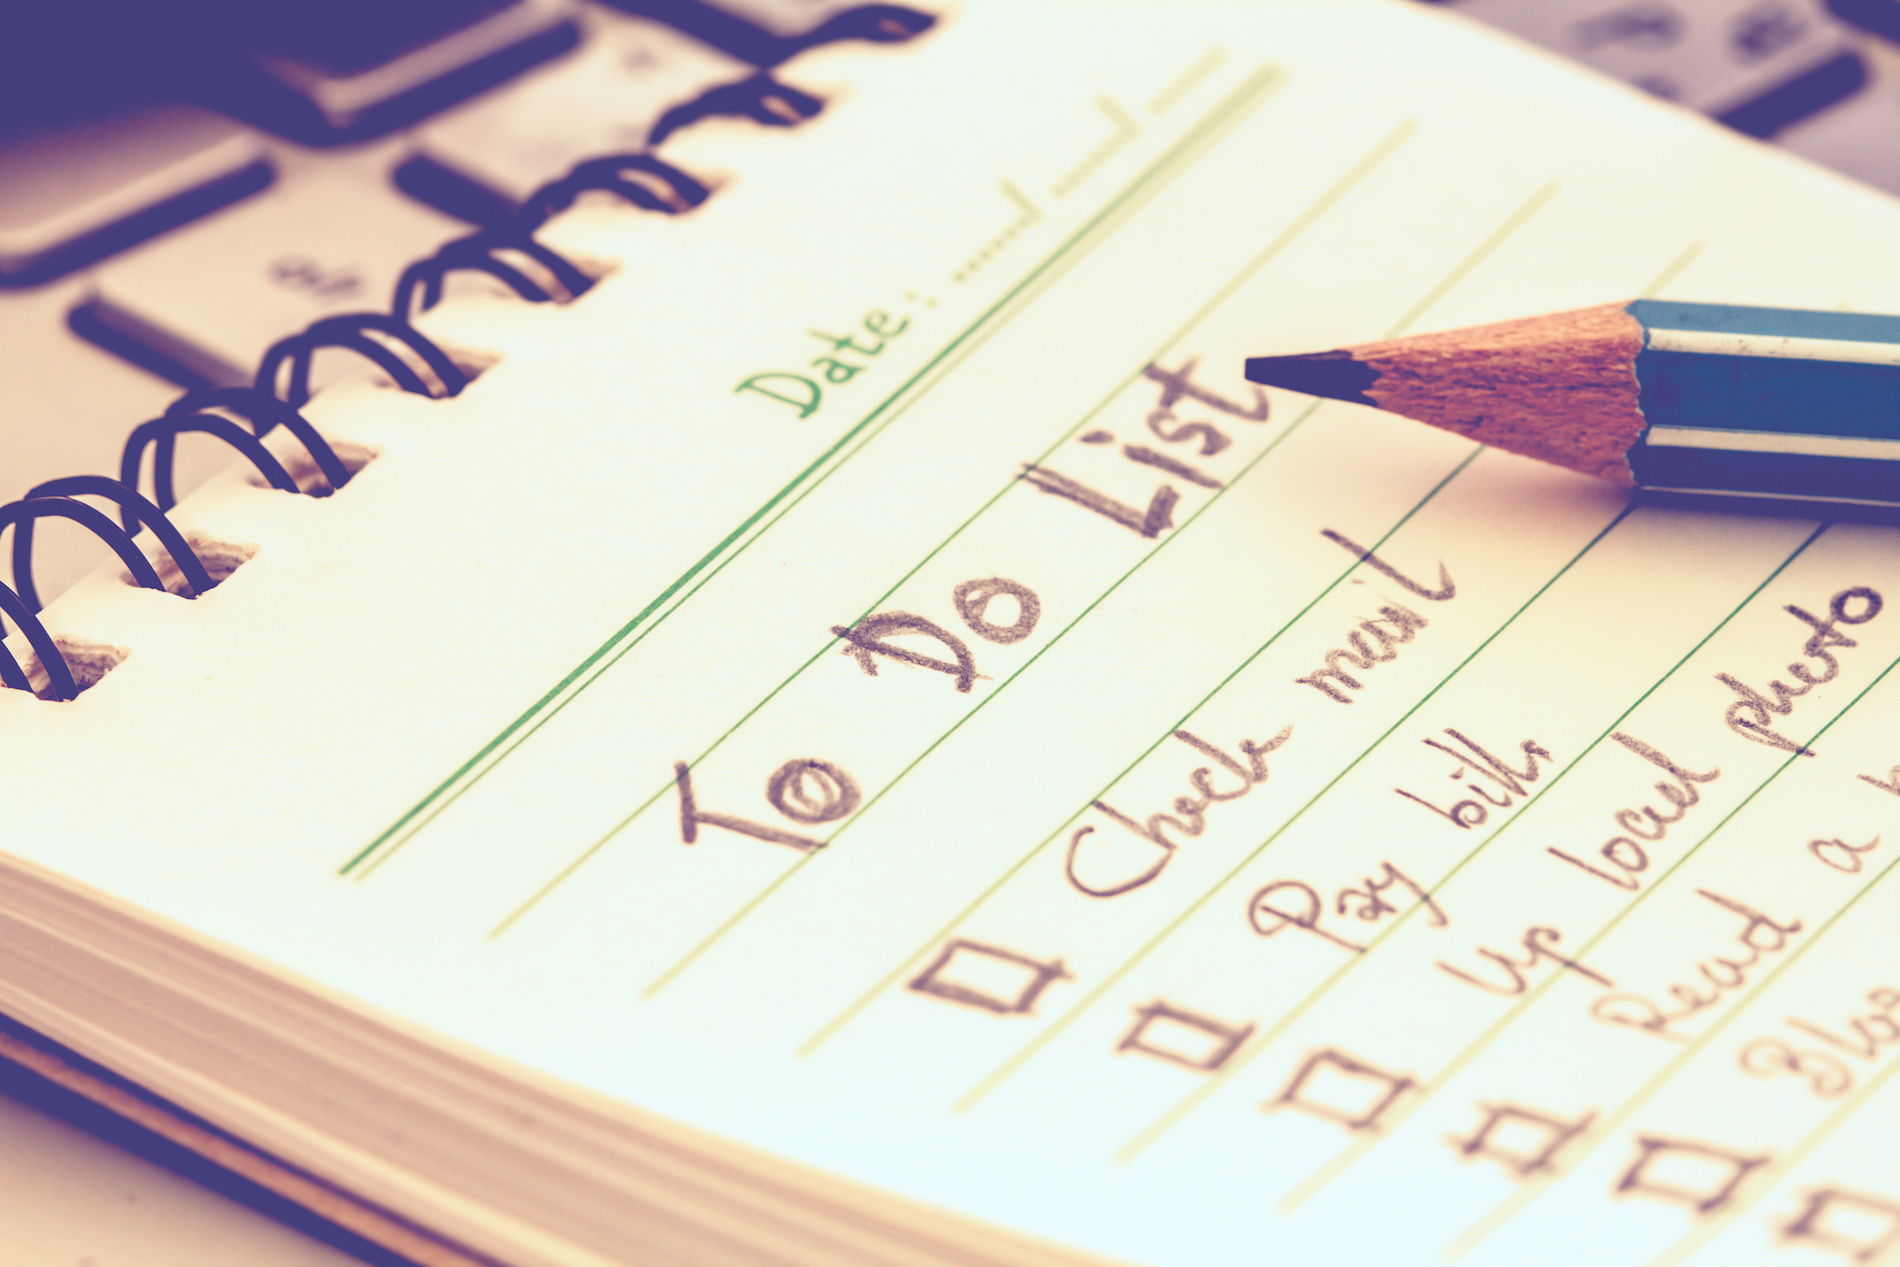 Date: ....../....../......
To Do List
Check mail
Pay bills
Up load photo
Read a